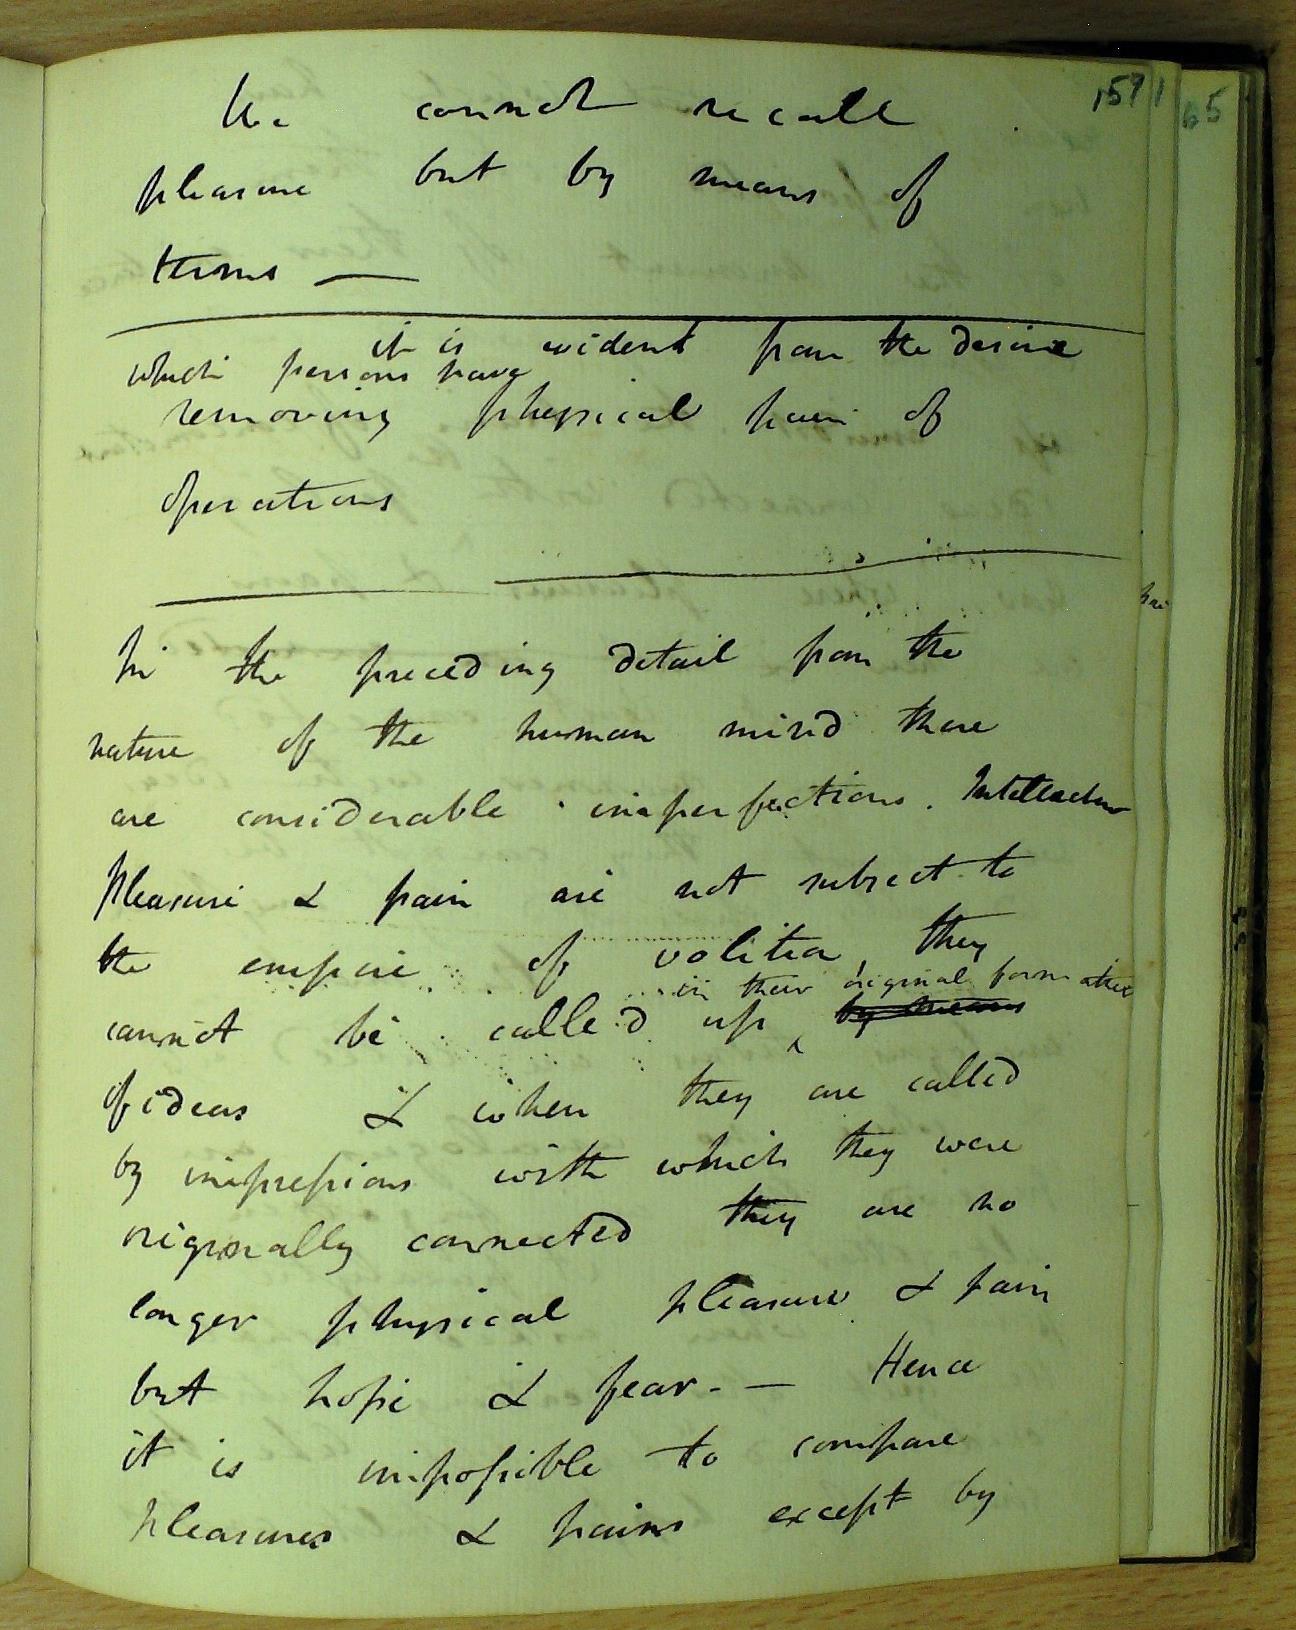 157
65
We cannot recall
pleasure but by means of
terms —
it is evident from the desire
which persons have
removing physical pain of
operations
In the preceding detail from the
nature of the human mind there
are considerable imperfections. Intellectual
Pleasure & pain are not subject to
the empire of volition, they
in their original form
cannot be called up ‸ by means
of ideas & when they are called
by impressions with which they were
originally connected they are no
longer physical pleasure & pain
but hope & fear. — Hence
it is impossible to compare
pleasures & pains except by